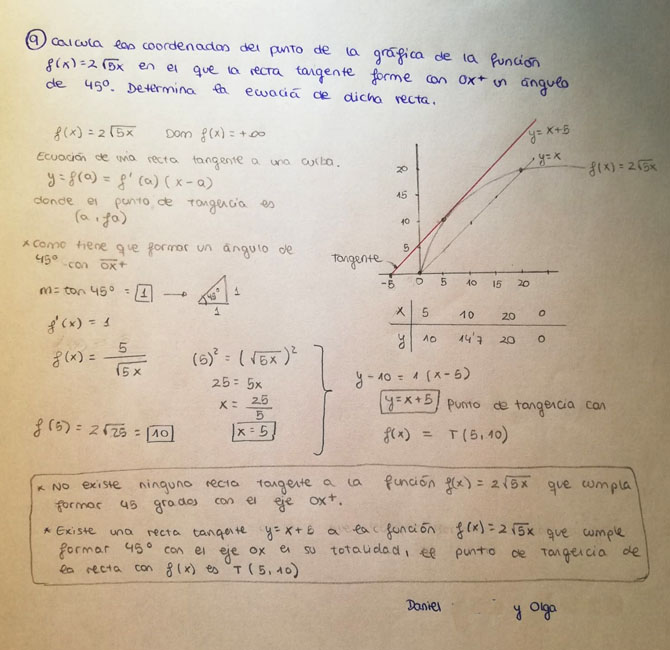 9 Calcula las coordenadas del punto de la gráfica de la función
f(x)=2√5x en el que la recta tangente forme con OX+ un ángulo
de 45º. Determina la ecuació de dicha recta.
f(x)=2√5x Dom f(x)=+∞
Ecuación de una recta tangente a una curba.
y=f(a)=f'(a)(x-a)
donde el punto de tangencia es
(a, fa)
* Como tiene que formar un ángulo de
45º con OX+
m=tan 45º = 1 → 45º 1 1
f'(x)=1
f(x)= 5/√5x (5)² = (√5x)²
25=5x
x= 25/5
f(5)=2√25=10 x=5
y=x+5
y=x
f(x)=2√5x
20
15
10
5
Tangente
-5 0 5 10 15 20
x 5 10 20 0
y 10 14'7 20 0
y-10=1(x-5)
y=x+5 punto de tangencia con
f(x) = T(5,10)
* No existe ninguna recta tangente a la función f(x)=2√5x que cumpla
formar 45 grados con el eje OX+.
* Existe una recta tangente y=x+5 a la función f(x)=2√5x que cumple
formar 45º con el eje OX en su totalidad, el punto de tangencia de
la recta con f(x) es T(5,10)
Daniel y Olga